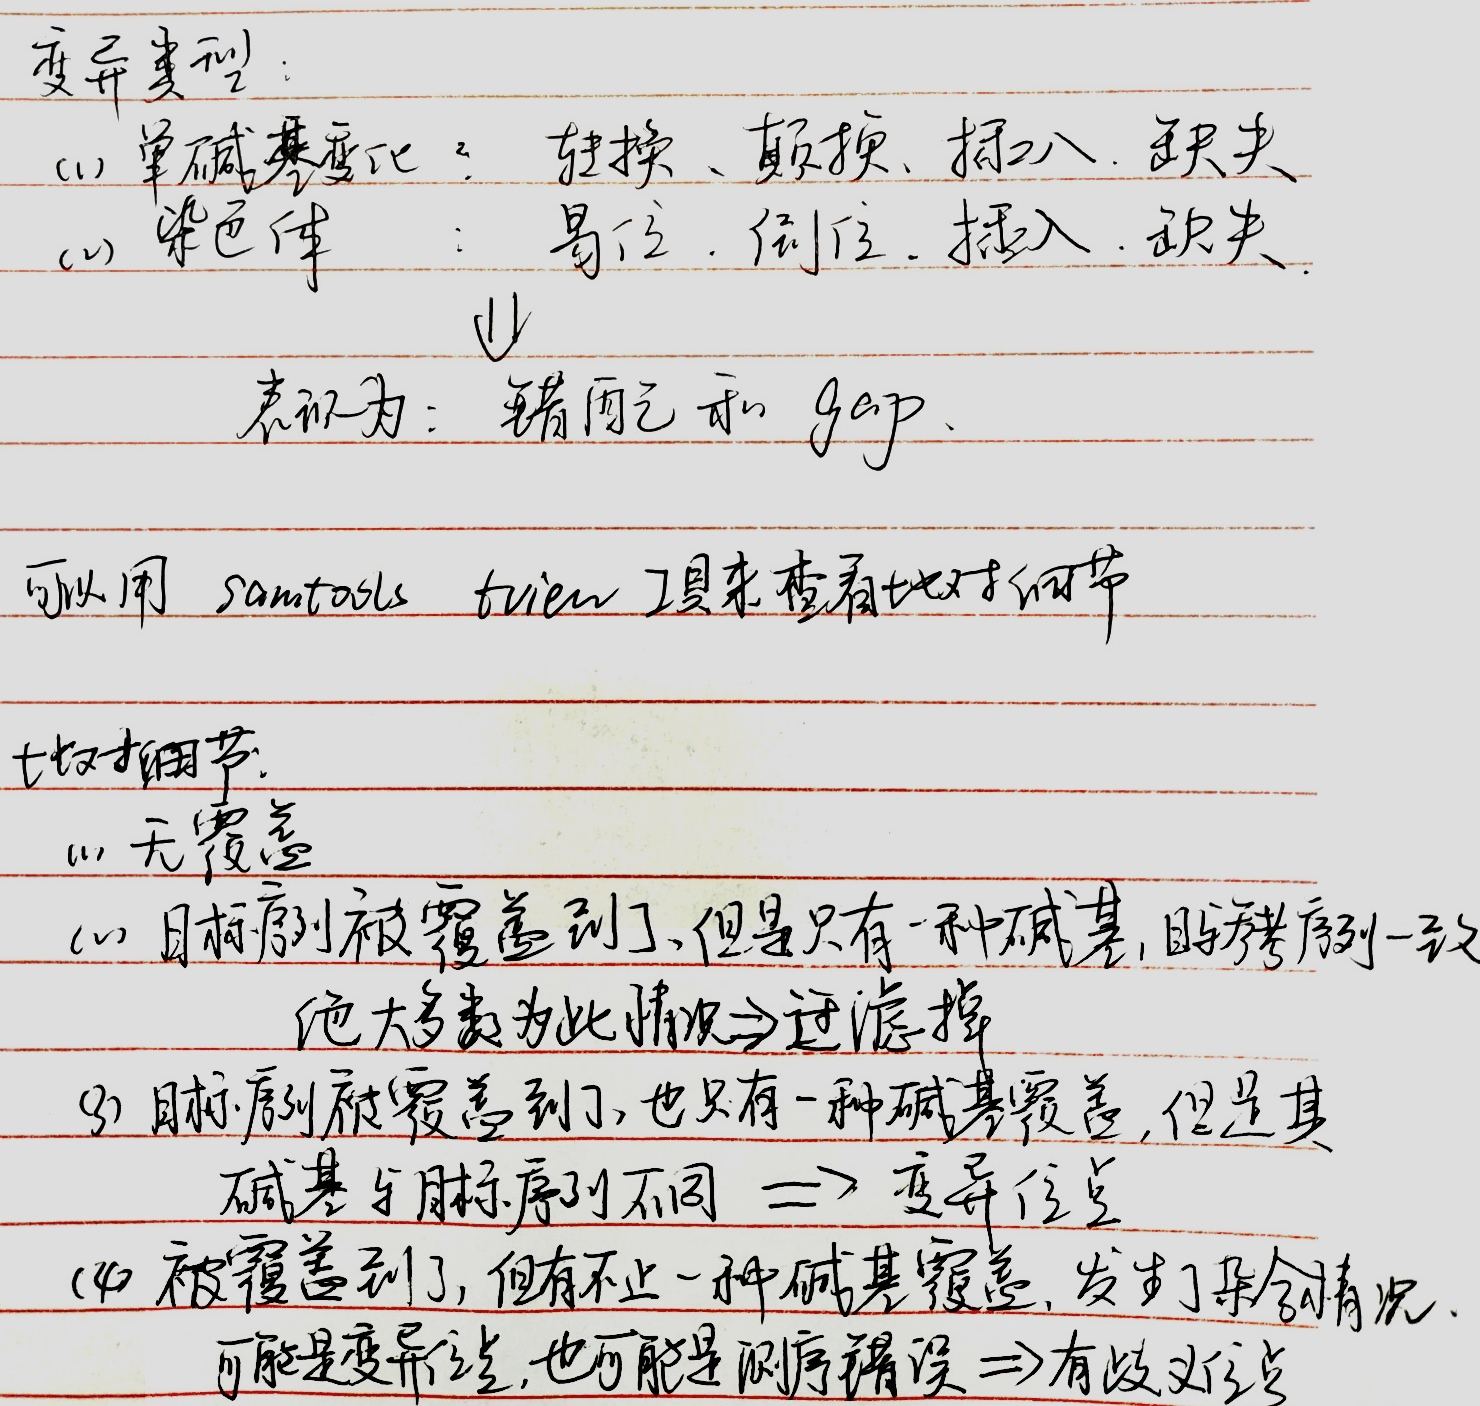 变异类型：
(1) 单碱基变化：转换、颠换、插入、缺失
(2) 染色体：易位、倒位、插入、缺失.
⇓
表现为：错配和 gap、
可以用 samtools tview 工具来查看比对细节
比对细节：
(1) 无覆盖
(2) 目标序列被覆盖到了，但是只有一种碱基，且与参考序列一致
绝大多数为此情况⇒过滤掉
(3) 目标序列被覆盖到了，也只有一种碱基覆盖，但是其
碱基与目标序列不同 => 变异位点
(4) 被覆盖到了，但有不止一种碱基覆盖，发生了杂合情况.
可能是变异位点，也可能是测序错误⇒有歧义位点